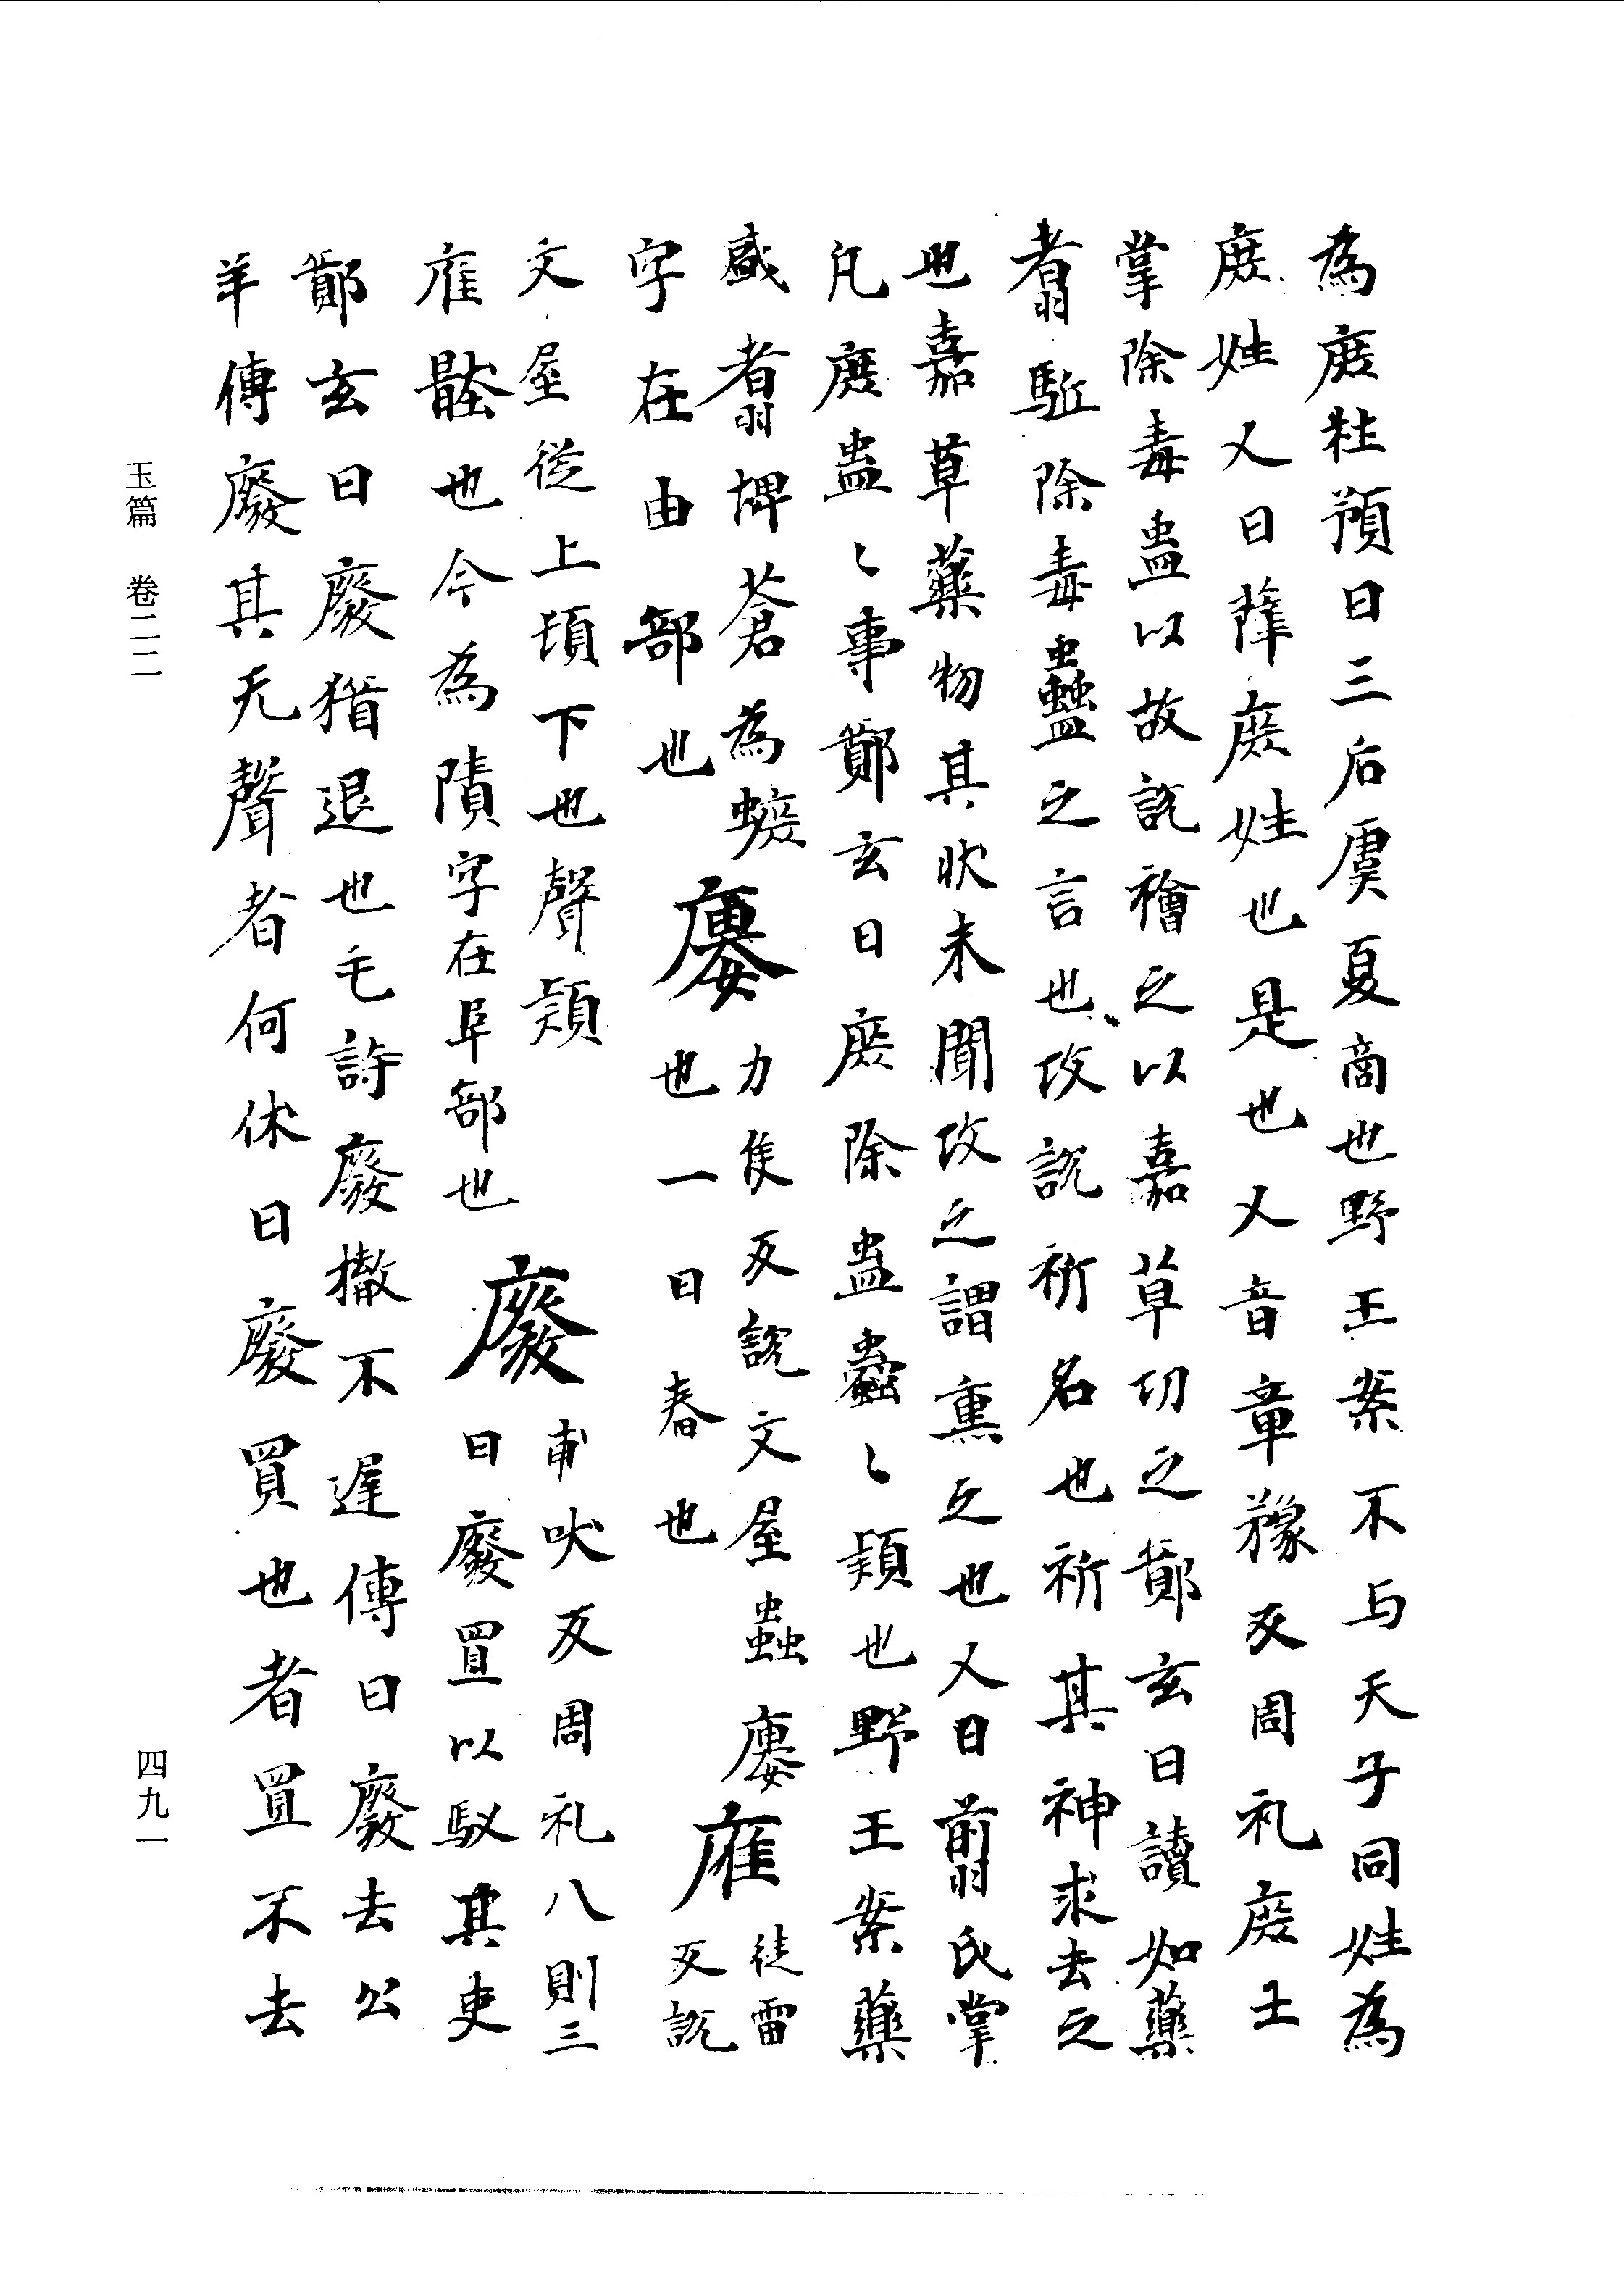 為庶牲預曰三后虞夏商也野王案不与天子同姓為
庶姓又曰薩庶姓也是也又音章豫反周礼庶王
掌除毒蛊以故説禬之以嘉草切之鄭玄曰讀如藥
翥駈除毒蠱之言也攻説祈名也祈其神求去之
也嘉草藥物其狀未聞攻之謂熏之也又曰翦氏掌
凡庶蛊〻事鄭玄曰庶除蛊蠹〻類也野王案藥
咸翥埤蒼為䗪廔力隻反説文屋蟲廔
字在由部也也一曰春也
𢉜徒雷反説
文屋從上頃下也聲類
𢉜骽也今為隤字在阜部也廢甫吠反周礼八則三
曰廢置以馭其吏
鄭玄曰廢猶退也毛詩廢撤不遲傳曰廢去公
羊傳廢其无聲者何休曰廢買也者置不去
玉篇 卷二二
四九一